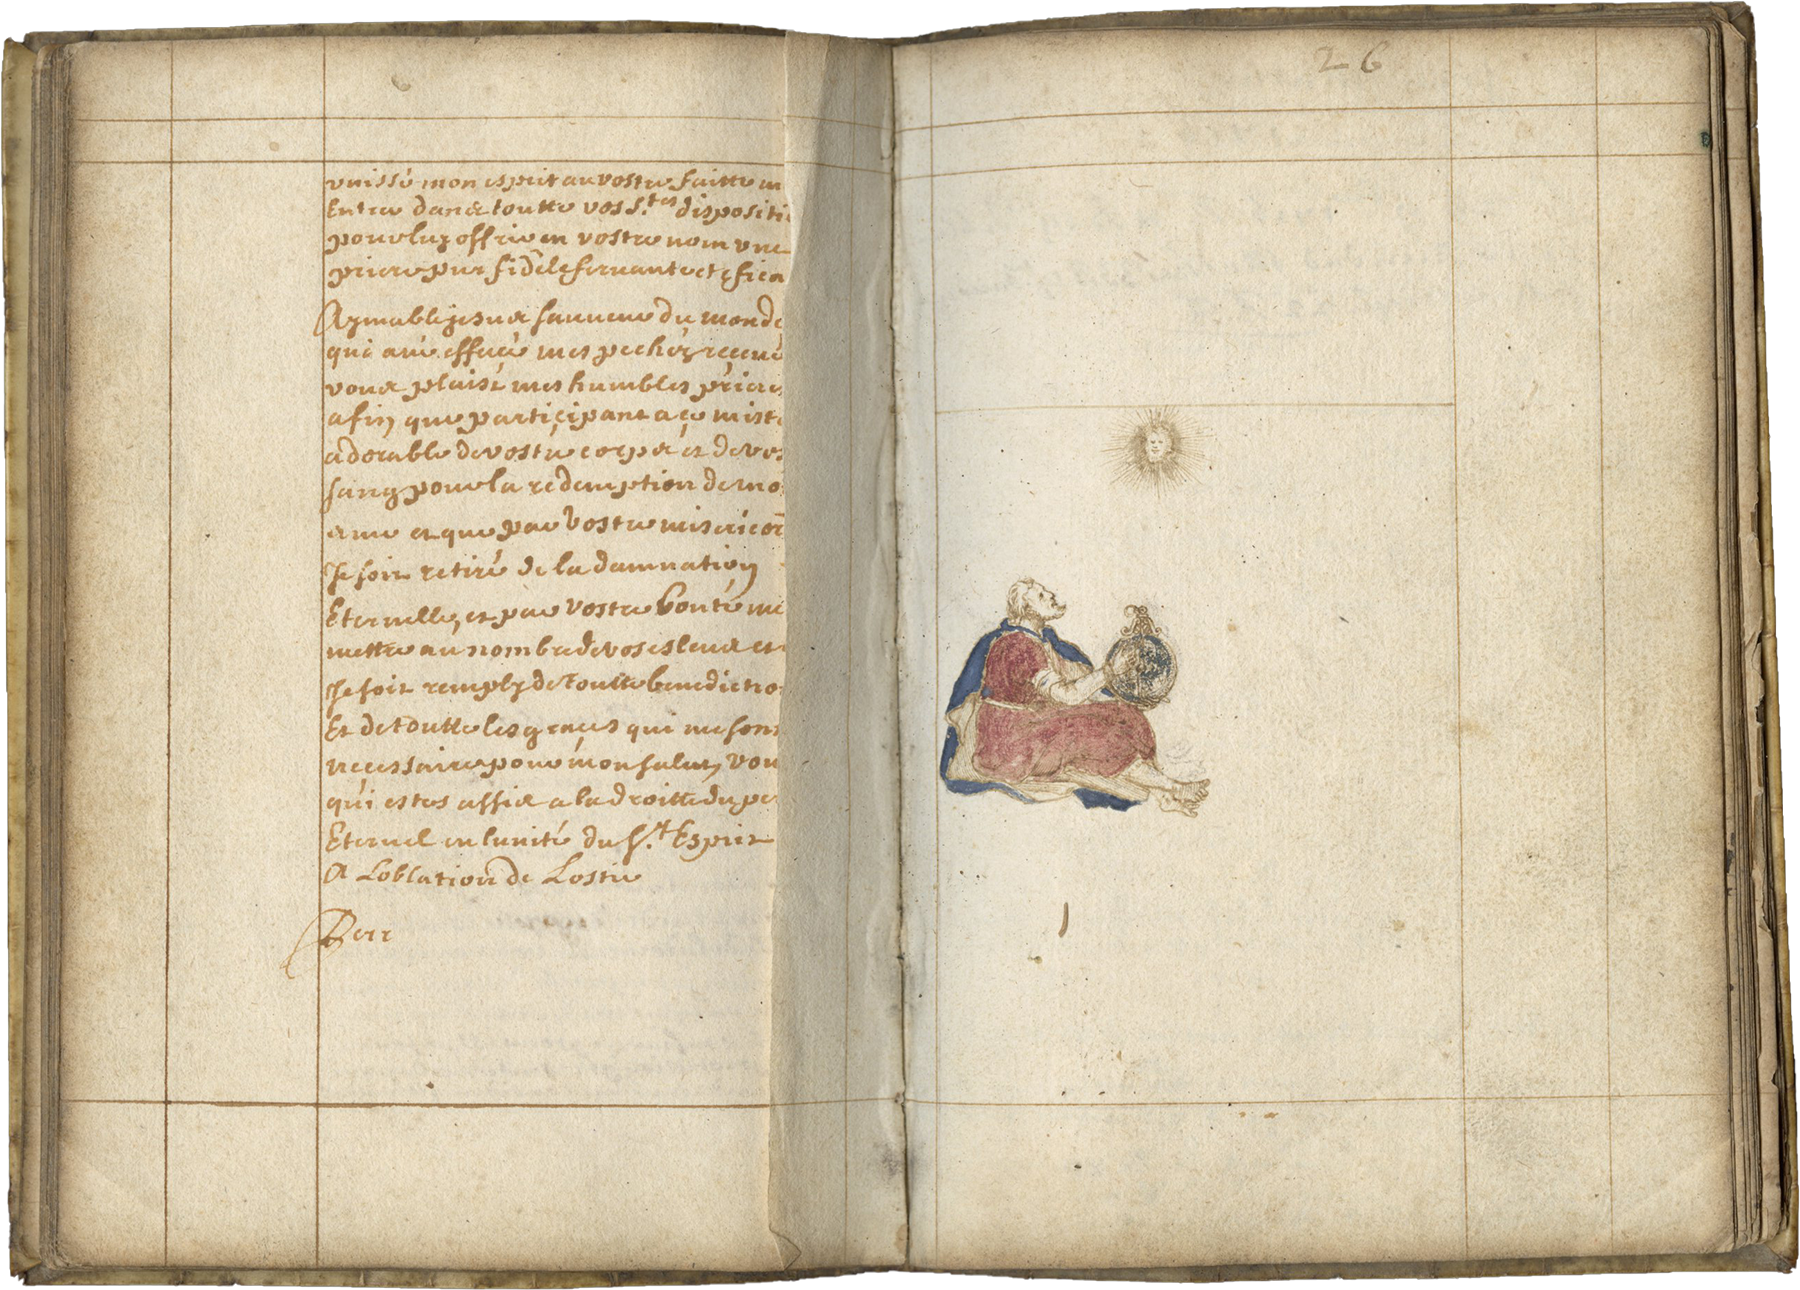 vnissé mon esprit au vostre faitte m
Entre dans toutte vos s.tes dispositi
pour luy offrir en vostre nom vne
priere pur fidele feruante et efica
Aymable jesus sauueur du monde
qui aué effacé mes pechez receué
vous plaist mes humbles prieres
afin que participant a ce miste
adorable de vostre corps et de vos
sang pour la redemption de mo
ame et que par vostre misericor
Je soit retiré de la damnation
Eternelle, et par vostre bonté me
mettre au nombre de vos esleus et
Je soit remply de toutte benedictio
Et de toutte les graces qui me son
necessaire pour mon salut, vou
qui estes assis a la droitte du per
Eternel en lunité du s.t Esprit
A Loblation de Lostie
26